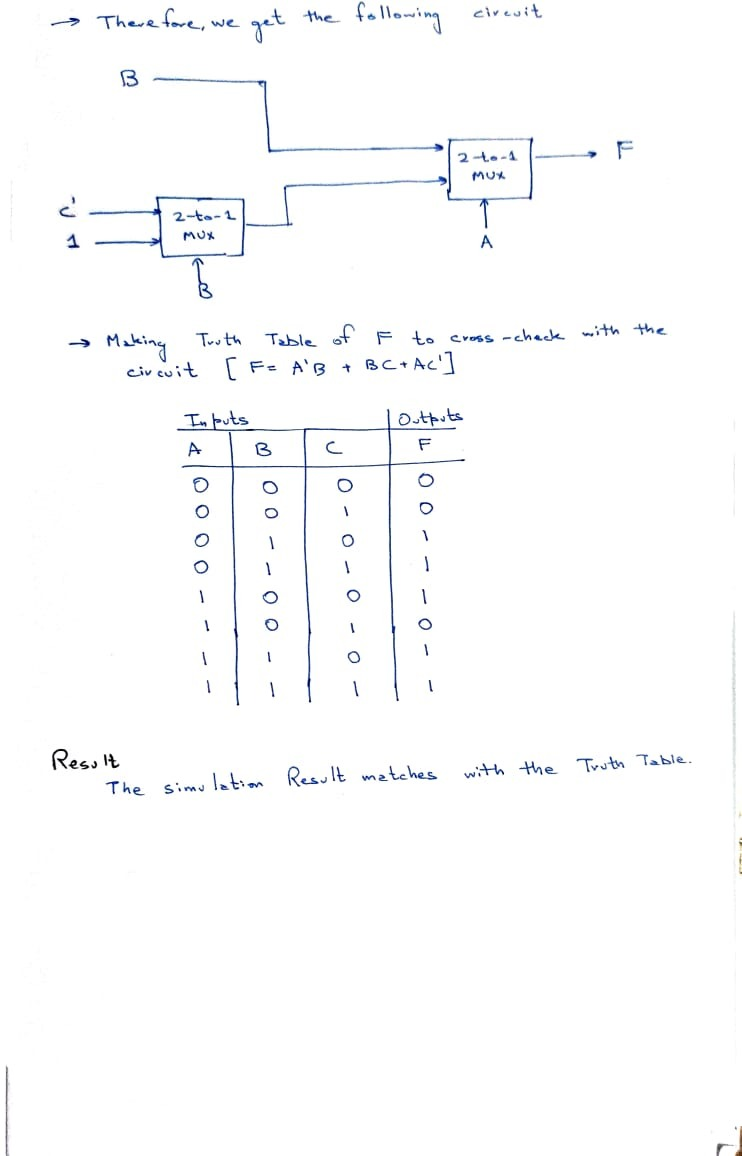 → Therefore, we get the following circuit
B
2-to-1
MUX
F
A
C'
1
2-to-1
MUX
B
→ Making Truth Table of F to cross-check with the
circuit [ F= A'B + BC + AC']
Inputs Outputs
A B C F
0 0 0 0
0 0 1 0
0 1 0 1
0 1 1 1
1 0 0 1
1 0 1 0
1 1 0 1
1 1 1 1
Result
The simulation Result matches with the Truth Table.